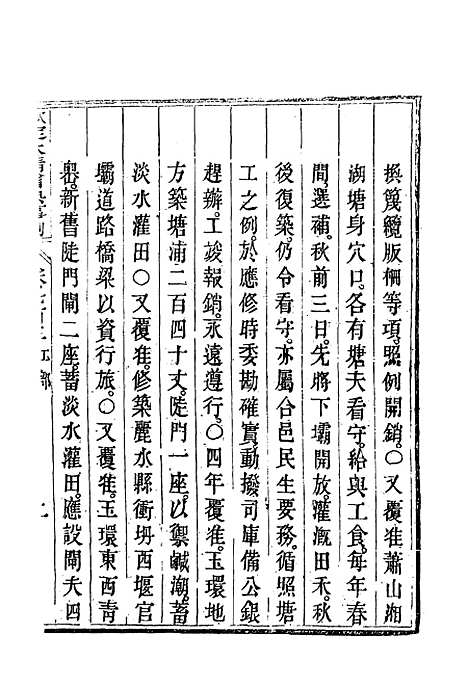 換篾纜版柵等項。照例開銷。○又覆准。蕭山湘
湖塘身穴口。各有塘夫看守。給與工食。每年春
間選補。秋前三日。先將下壩開放。灌溉田禾。秋
後復築。仍令看守。亦屬合邑民生要務。循照塘
工之例。於應修時委勘確實。動撥司庫備公銀
趕辦。工竣報銷。永遠遵行。○四年覆准。玉環地
方築塘浦二百四十丈。陡門一座。以禦鹹潮。蓄
淡水灌田。○又覆准。修築麗水縣衝坍西堰官
壩道路橋梁。以資行旅。○又覆准。玉環東西青
嶴。新舊陡門閘二座。蓄淡水灌田。應設閘夫四